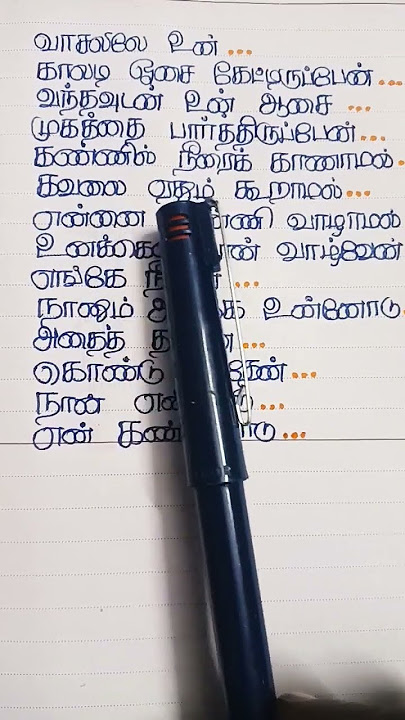 வாசலிலே உன் ...
காலடி ஓசை கேட்டிருப்பேன் ...
வந்தவுடன் உன் ஆசை ...
முகத்தை பார்த்திருப்பேன் ...
கண்ணில் நீரைக் காணாமல் .
கவலை ஏதும் கூறாமல் ...
என்னை வாழாமல்
வாழ்வேன்
எங்கே ...
நானும் உன்னோடு
அதைத் ...
கொண்டு ...
நான் ...
என் ...